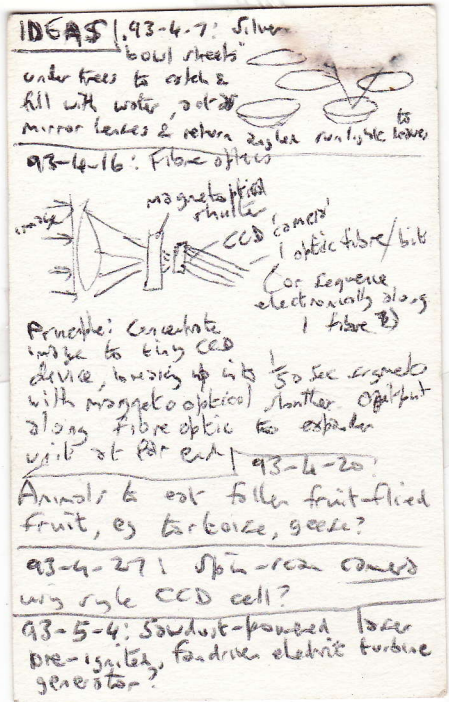 IDEAS 93-4-7: Silver
"bowl sheets"
under trees to catch &
fill with water, act as
mirror lenses & return angled sunlight to leaves
93-4-16: Fibre optics
magnetoptical
shutter
image
CCD 'camera'
1 optic fibre/bit
(or sequence
electronically along
1 fibre
Principle: Concentrate
image to tiny CCD
device, breaking up into 1/50 sec segments
with magnetooptical shutter output
along fibre optic to expander
unit at far end
93-4-20:
Animals to eat fallen fruit-flied
fruit, eg tortoise, geese?
93-4-27: Spin-scan camera
using single CCD cell?
93-5-4: Sawdust-powered laser
pre-ignited, fan driven electric turbine
generator?